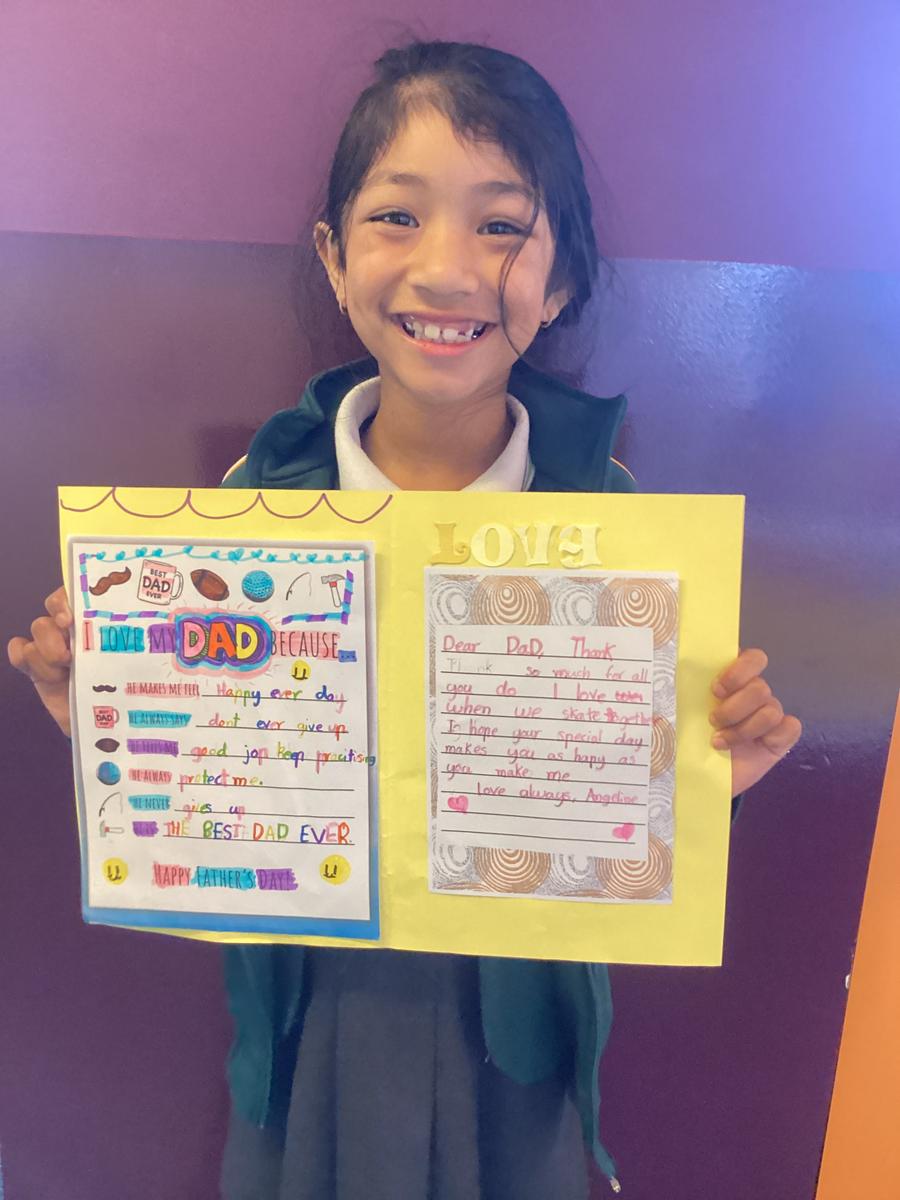 BEST
DAD
EVER
I LOVE MY DAD BECAUSE...
HE MAKES ME FEEL Happy ever day
BEST
DAD
HE ALWAYS SAYS dont ever give up
HE TELLS ME good jop keep pracitising
HE ALWAYS protect me.
HE NEVER gives up
HE IS THE BEST DAD EVER.
HAPPY FATHER'S DAY!
LOVE
Dear DaD, Thank
Thank so much for all
you do I love
when we skate together
I hope your special day
makes you as hapy as
you make me
love always, Angeline